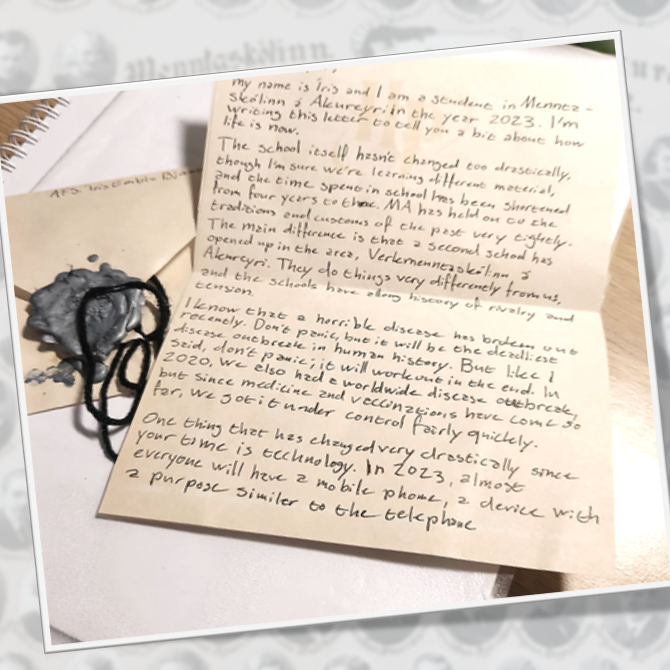 Menntaskólinn
my name is Íris and I am a student in Mennta-
skólinn á Akureyri in the year 2023. I'm
writing this letter to tell you a bit about how
life is now.
The school itself hasn't changed too drastically,
though I'm sure we're learning different material,
and the time spent in school has been shortened
from four years to three. MA has held on to the
traditions and customs of the past very tightly.
The main difference is that a second school has
opened up in the area, Verkmenntaskólinn á
Akureyri. They do things very differently from us,
and the schools have a long history of rivalry and
tension.
I know that a horrible disease has broken out
recently. Don't panic, but it will be the deadliest
disease outbreak in human history. But like I
said, don't panic; it will work out in the end. In
2020, we also had a worldwide disease outbreak,
but since medicine and vaccinations have come so
far, we got it under control fairly quickly.
One thing that has changed very drastically since
your time is technology. In 2023, almost
everyone will have a mobile phone, a device with
a purpose similar to the telephone